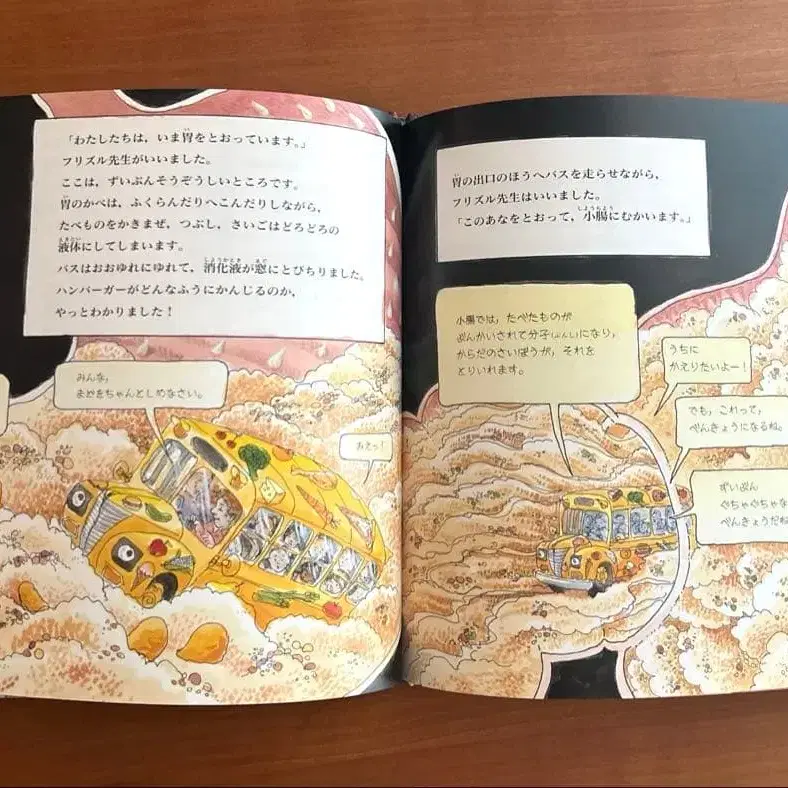 「わたしたちは，いま胃をとおっています。」
フリズル先生がいいました。
ここは，ずいぶんそうぞうしいところです。
胃のかべは，ふくらんだりへこんだりしながら，
たべものをかきまぜ，つぶし，さいごはどろどろの
液体にしてしまいます。
バスはおおゆれにゆれて，消化液が窓にとびちりました。
ハンバーガーがどんなふうにかんじるのか，
やっとわかりました！
みんな，
まどをちゃんとしめなさい。
おえっ！
胃の出口のほうへバスを走らせながら，
フリズル先生はいいました。
「このあなをとおって，小腸にむかいます。」
小腸では，たべたものが
ぶんかいされて分子(ぶんし)になり，
からだのさいぼうが，それを
とりいれます。
うちに
かえりたいよー！
でも，これって，
べんきょうになるね。
ずいぶん
ぐちゃぐちゃな
べんきょうだね